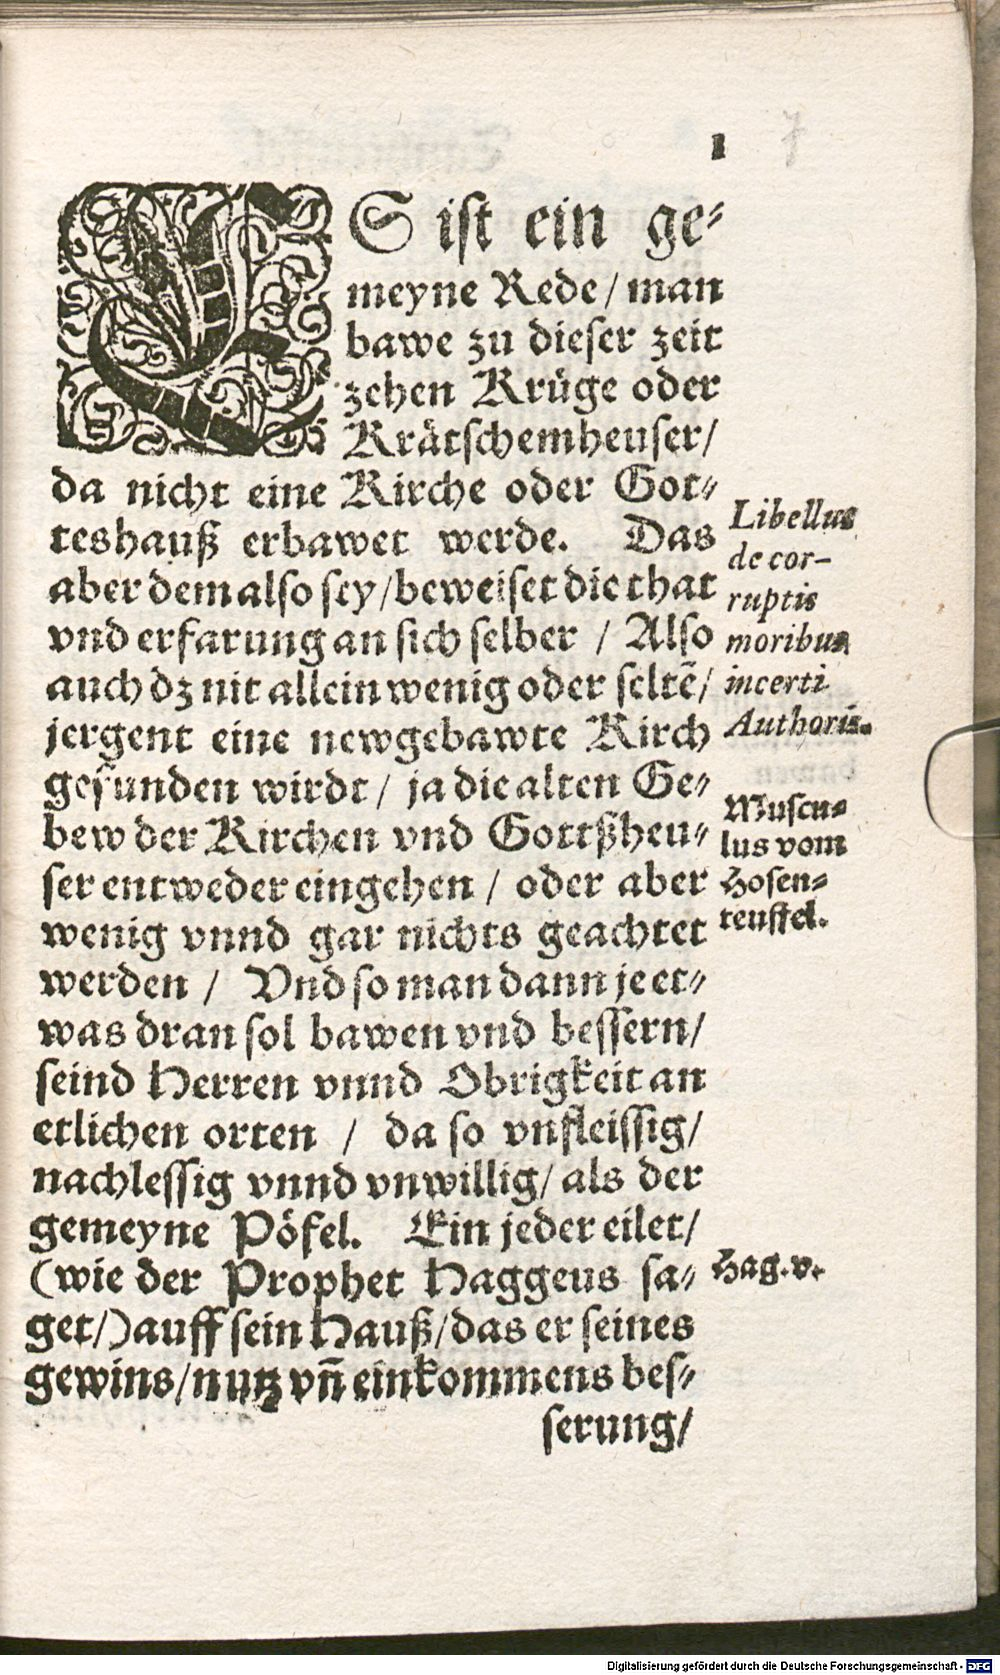 1 7
ES ist ein ge⸗
meyne Rede/ man
bawe zu dieser zeit
zehen Krüge oder
Krätschemheuser/
da nicht eine Kirche oder Got⸗
teshauß erbawet werde. Das
aber dem also sey/ beweiset die that
vnd erfarung an sich selber / Also
auch dz nit allein wenig oder seltẽ/
jergent eine newgebawte Kirch
gefunden wirdt/ ja die alten Ge⸗
bew der Kirchen vnd Gottßheu⸗
ser entweder eingehen / oder aber
wenig vnnd gar nichts geachtet
werden / Vnd so man dann je et⸗
was dran sol bawen vnd bessern/
seind Herren vnnd Obrigkeit an
etlichen orten / da so vnfleissig/
nachlessig vnnd vnwillig/ als der
gemeyne Pöfel. Ein jeder eilet/
(wie der Prophet Haggeus sa⸗
get/) auff sein Hauß/ das er seines
gewins/ nutz vñ einkommens bes⸗
serung/
Libellus
de cor-
ruptis
moribus
incerti
Authoris.
Muscu⸗
lus vom
Hosen⸗
teuffel.
Hag. v.
Digitalisierung gefördert durch die Deutsche Forschungsgemeinschaft - DFG